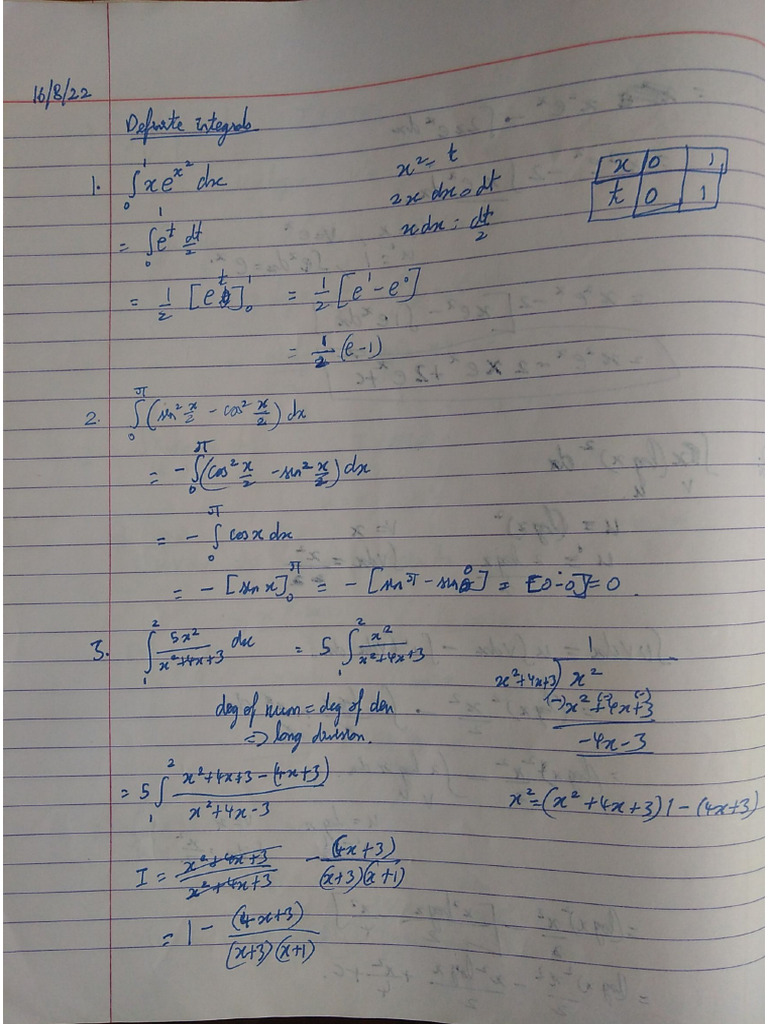 16/8/22
Definite integrals
1. ∫₀¹ x e^{x²} dx
x² = t
2x dx = dt
x dx = dt/2
x 0 1
t 0 1
= ∫₀¹ e^t dt/2
= 1/2 [e^t]₀¹ = 1/2 [e¹ - e⁰]
= 1/2 (e-1)
2. ∫₀^π (sin² x/2 - cos² x/2) dx
= -∫₀^π (cos² x/2 - sin² x/2) dx
= - ∫₀^π cos x dx
= - [sin x]₀^π = - [sin π - sin 0] = [0-0] = 0.
3. ∫₁² 5x²/(x²+4x+3) dx = 5 ∫₁² x²/(x²+4x+3)
1
x²+4x+3) x²
(-)x² (-)+4x (-)+3
-4x-3
x² = (x²+4x+3) 1 - (4x+3)
deg of num = deg of den
⇒ long division.
= 5 ∫₁² (x²+4x+3 - (4x+3))/(x²+4x-3)
I = (x²+4x+3)/(x²+4x+3) - (4x+3)/((x+3)(x+1))
= 1 - (4x+3)/((x+3)(x+1))